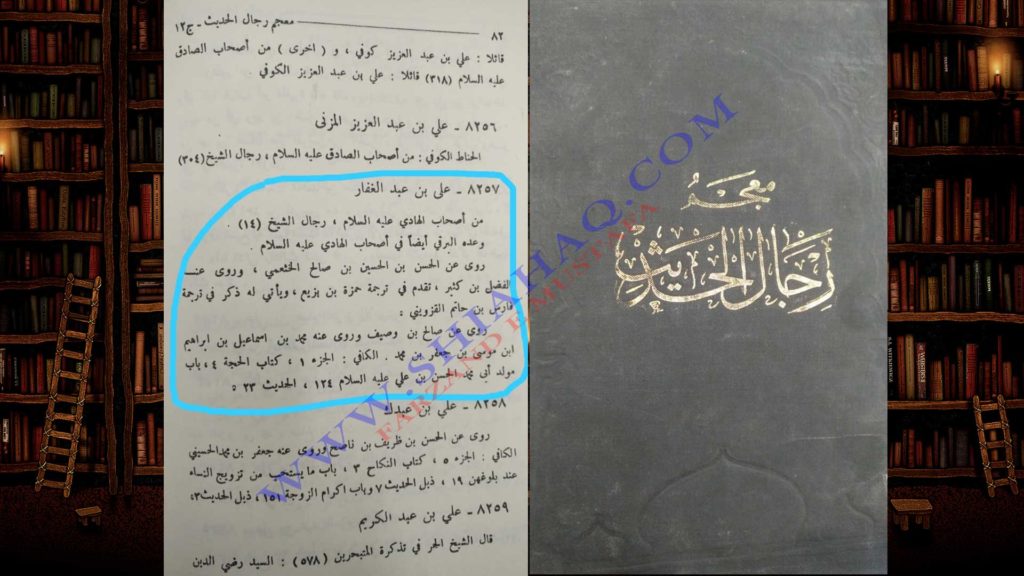 ٨٢
معجم رجال الحديث ـ ج١٢
قائلا : علي بن عبد العزيز كوفي ، و ( اخرى ) من أصحاب الصادق
عليه السلام (٣١٨) قائلا : علي بن عبد العزيز الكوفي
٨٢٥٦ ـ علي بن عبد العزيز المزنى
الحناط الكوفي : من أصحاب الصادق عليه السلام ، رجال الشيخ (٣٠٤)
٨٢٥٧ ـ على بن عبد الغفار
من أصحاب الهادي عليه السلام ، رجال الشيخ (١٤) .
وعده البرقي أيضاً في أصحاب الهادي عليه السلام .
روى عن الحسن بن الحسين بن صالح الخثعمي ، وروى عنـ
الفضل بن كثير ، تقدم في ترجمة حمزة بن بزيع ، ويأتي له ذكر في ترجمة
فارس بن حاتم القزويني :
روى عن صالح بن وصيف وروى عنه محمد بن اسماعيل بن ابراهيم
ابن موسى بن جعفر بن محمد . الكافي : الجزء ١ ، كتاب الحجة ٤ ، باب
مولد أبي محمد الحسن بن علي عليه السلام ١٢٤ ، الحديث ٢٣ :
٨٢٥٨ ـ علي بن عبدك
روى عن الحسن بن ظريف بن ناصح وروى عنه جعفر بن محمد الحسيني
الكافي : الجزء ٥ ، كتاب النكاح ٣ ، باب ما يستحب من تزويج النساء
عند بلوغهن ١٩ ، ذيل الحديث ٧ وباب اكرام الزوجة ١٥١ ، ذيل الحديث ٣
٨٢٥٩ ـ علي بن عبد الكريم
قال الشيخ الحر في تذكرة المتبحرين (٥٧٨) : السيد رضي الدين
معجم
رجال الحديث
WWW.SHIAHAQ.COM
FARZAND E MUSTAFA